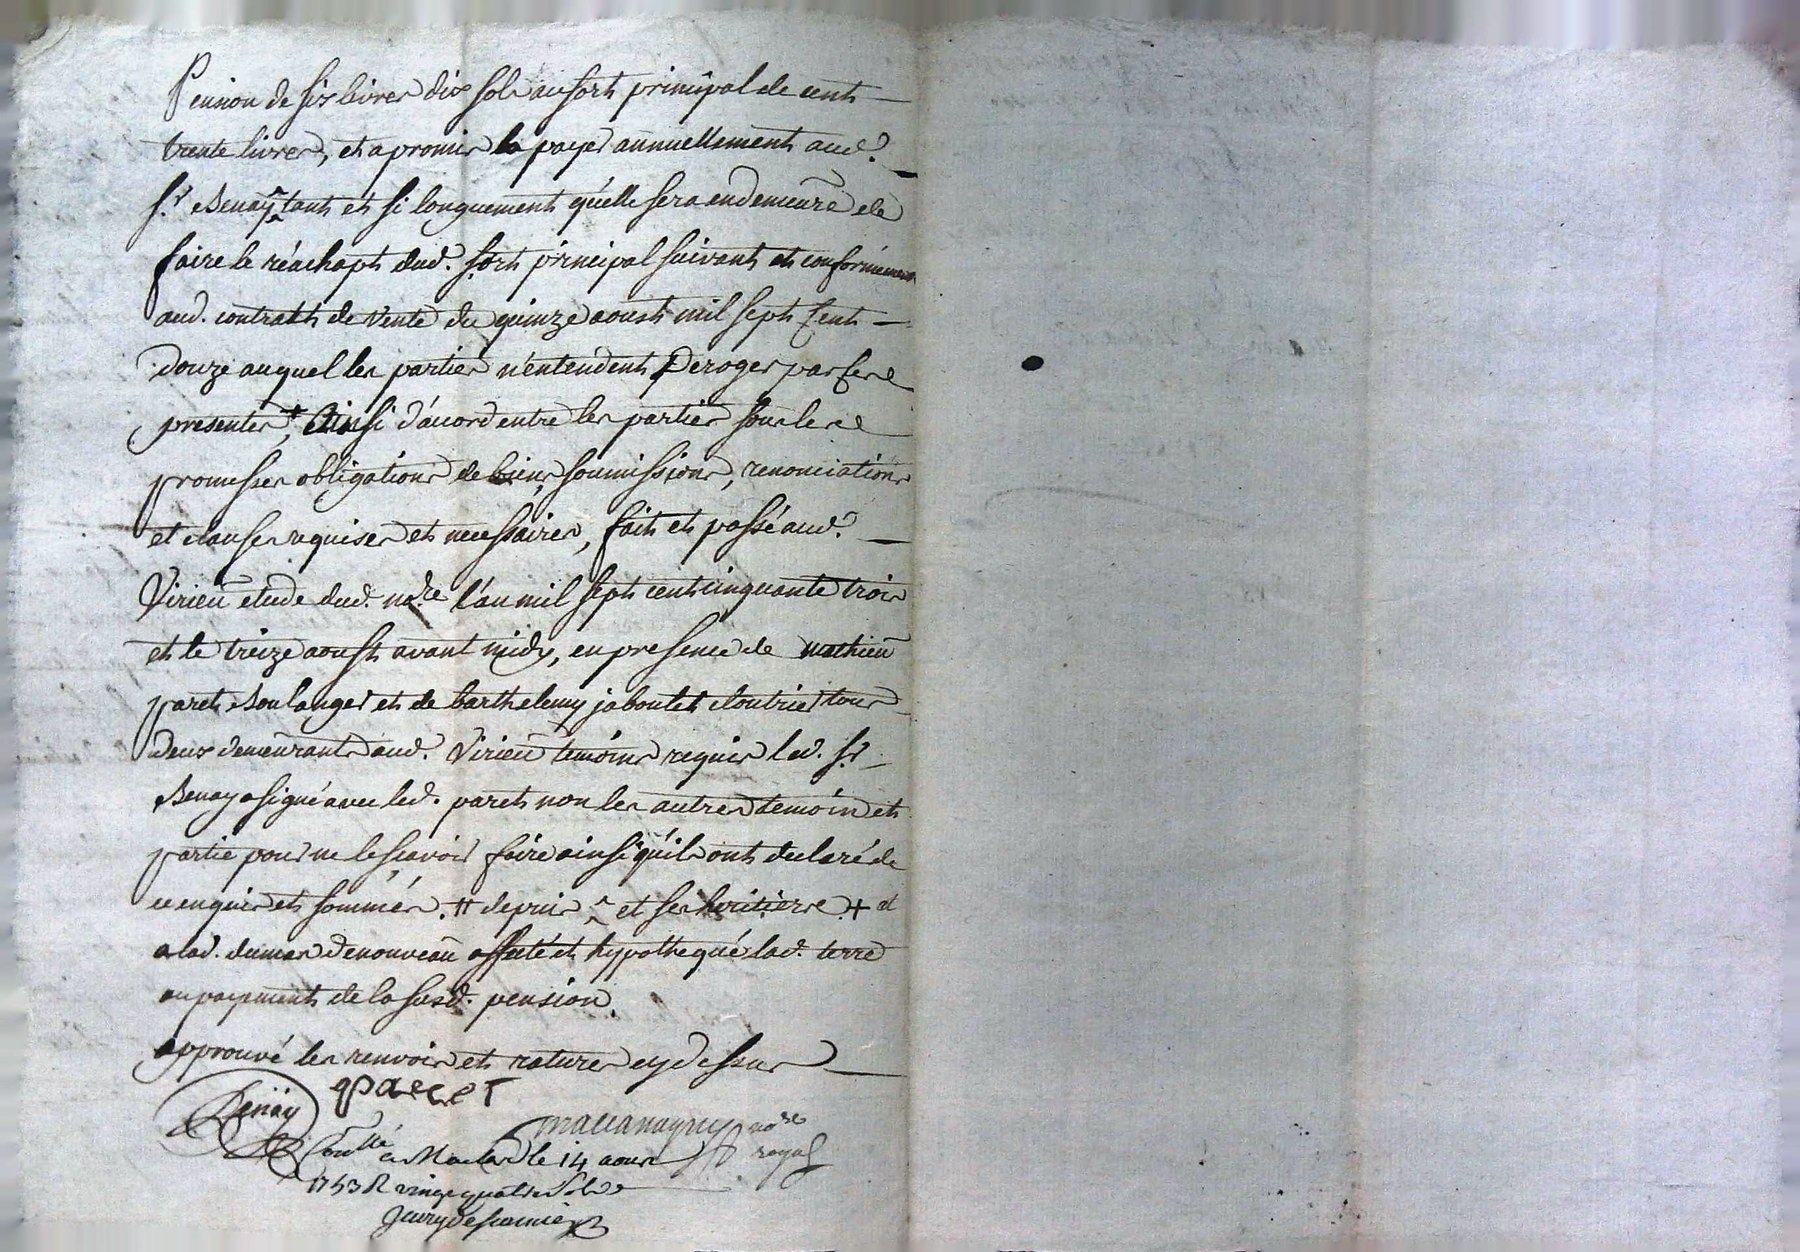 Pension de six livres dix sols au sort principal de cent
trente livres, et a promis la payer annuellement aud.
Sr. Benay tant et si longuement qu'elle sera en demeure de
faire le réachapt dud. sort principal suivant et conformément
aud. contratt de vente du quinze aoust mil sept cent
douze auquel les parties n'entendent Deroger par ces
presentes + Ainsi d'acord entre les parties sous les
promesses obligations de biens, soumissions, renonciations
et clauses requises et necessaires, fait et passé aud.
Virieu etude dud. nore. l'an mil sept cent cinquante trois
et le treize aoust avant midy, en presence de mathieu
paret Boulanger et de barthelemy jaboulet cloutrier tous
deux demeurants aud. Virieu temoins requis led. Sr.
Benay a signé avec led. paret non les autres temoin et
partie pour ne le sçavoir faire ainsi qu'ils ont declaré de
ce enquis et sommés. # depuis ^ et ses heritiers + et
a lad. dumas de nouveau affecté et hypothequé lad. terre
au payement de la susd. pension.
approuvé les renvois et ratures cy dessus
Benay paret
nore
royal
Conllé a Maclas le 14 aoust
1753 R vingt quatre sols